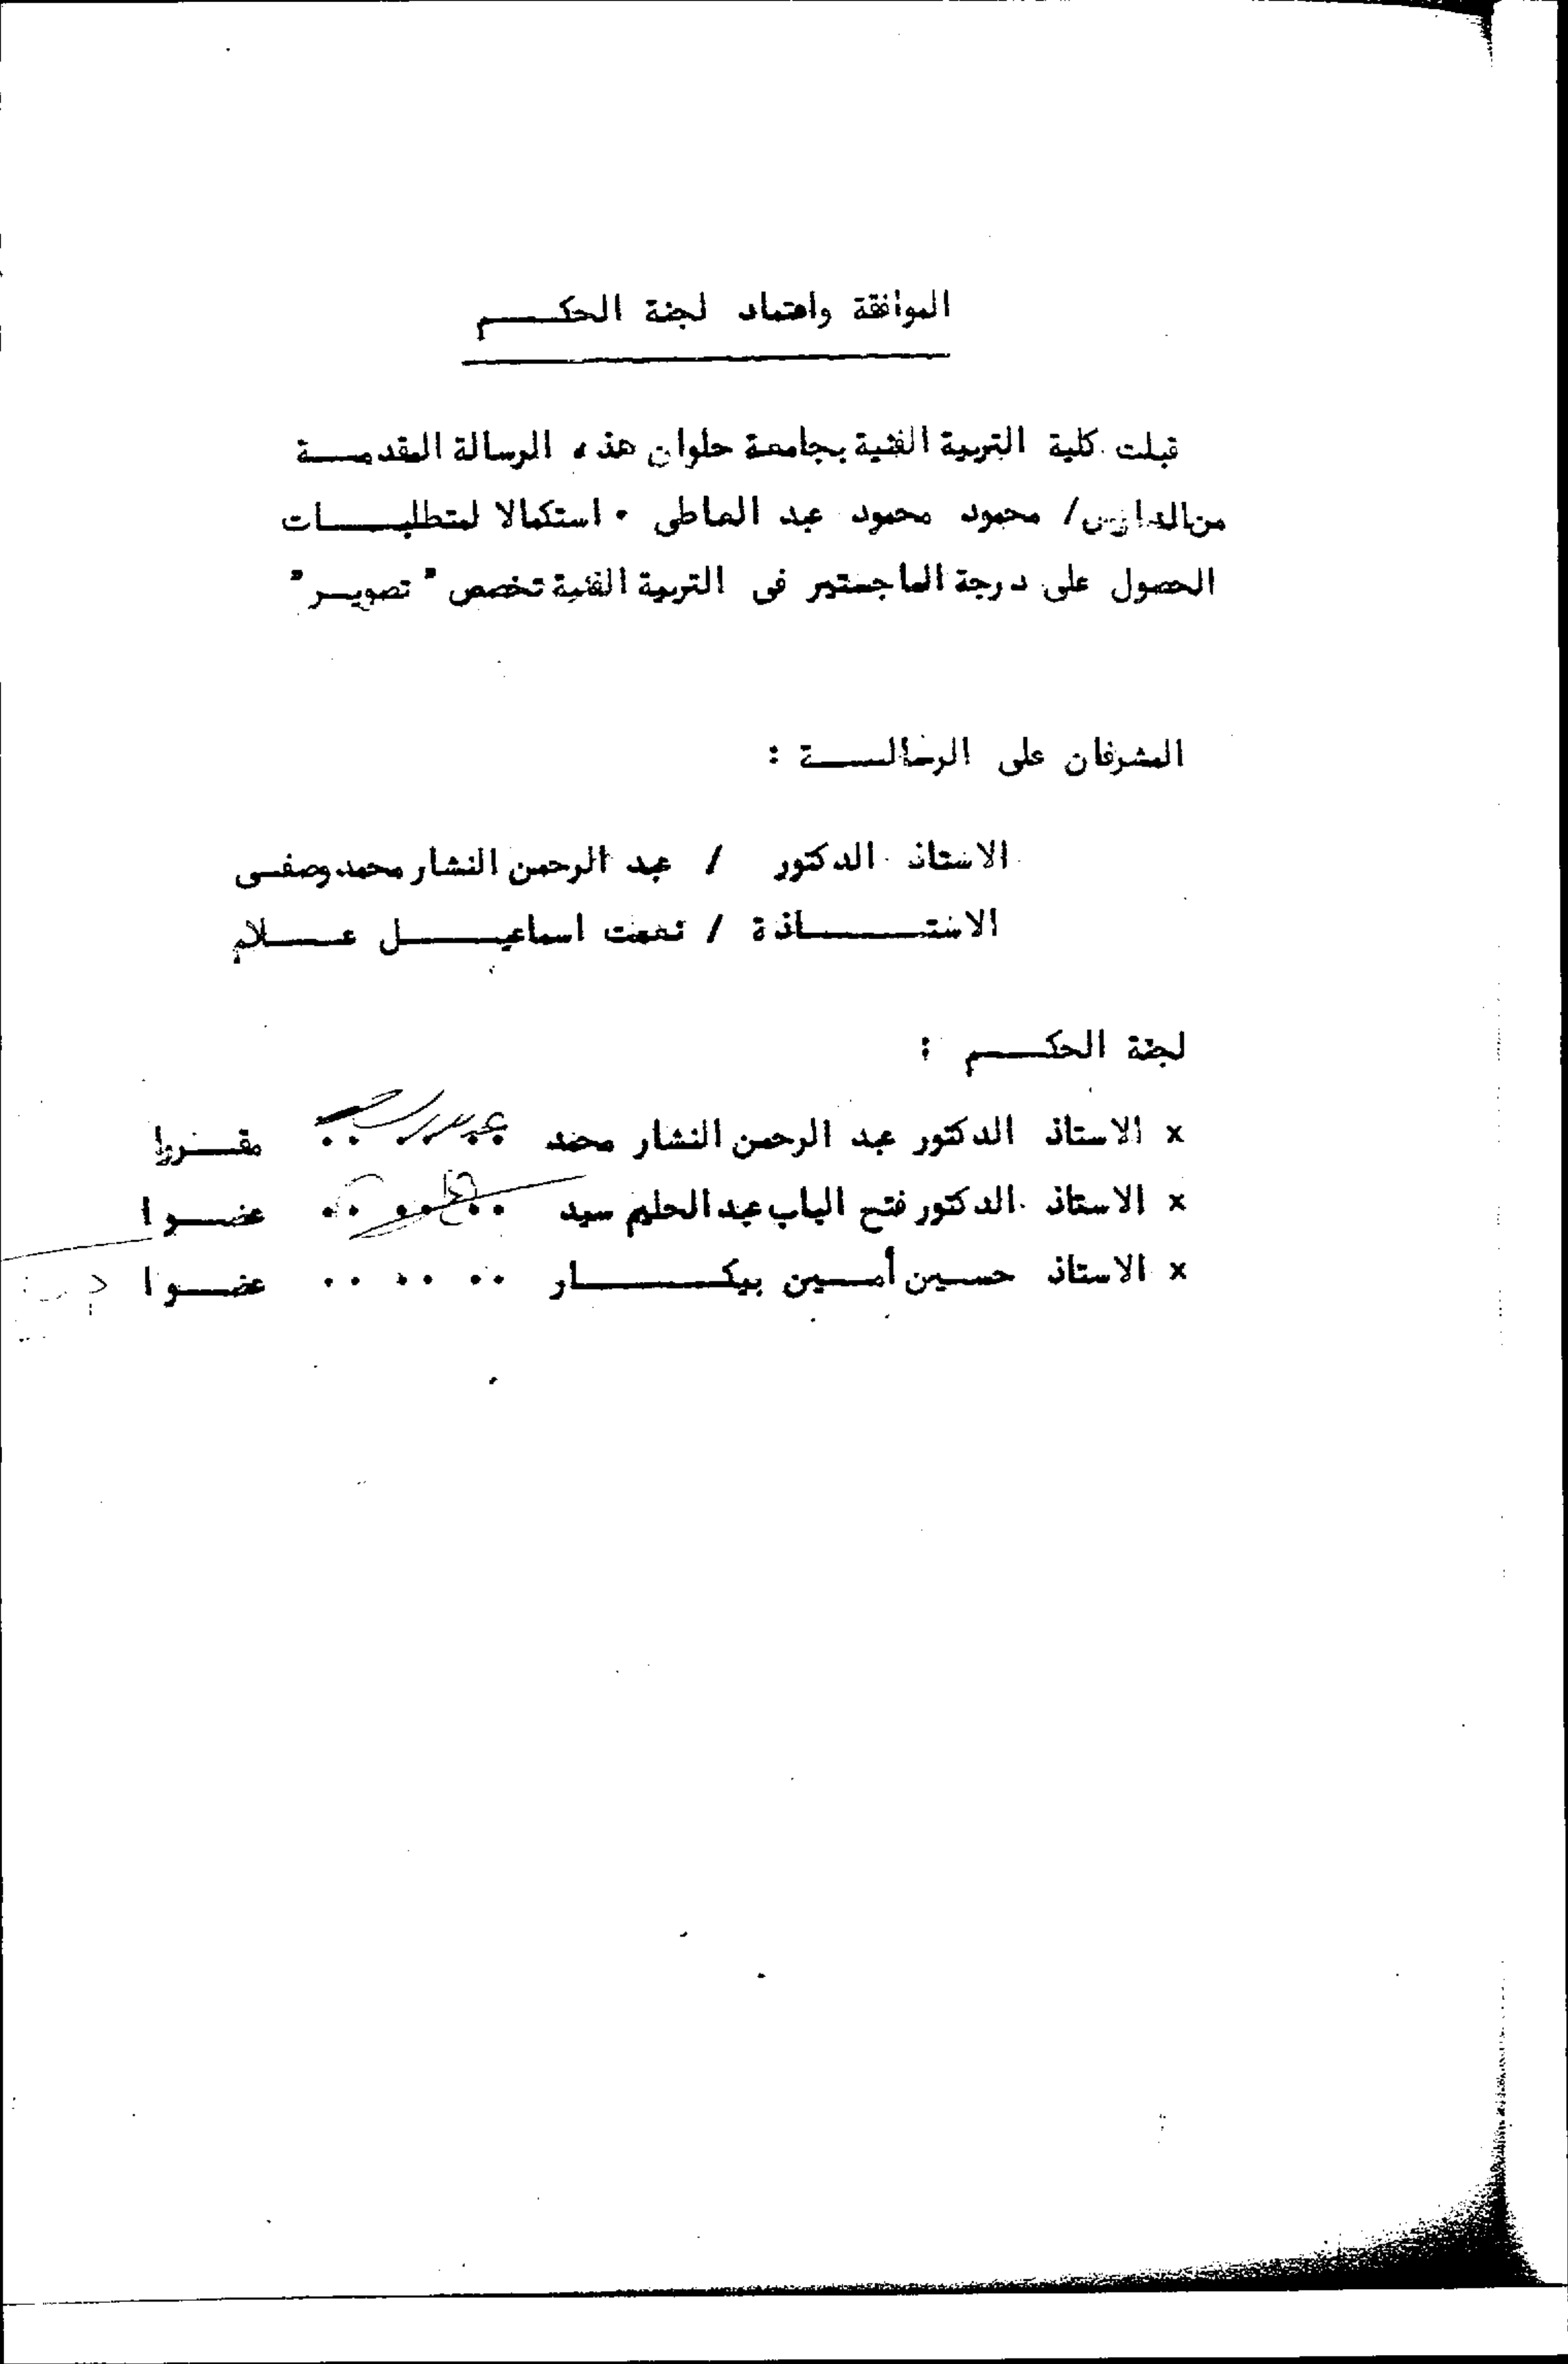 الموافقة واعتماد لجنة الحكـــم
قبلت كلية التربية الفنية بجامعة حلوان هذه الرسالة المقدمـــة
من الدارس/ محمود محمود عبد العاطى ٠ استكمالا لمتطلبـــات
الحصول على درجة الماجستير فى التربية الفنية تخصص " تصويـر "
المشرفان على الرسالـــة :
الاستاذ الدكتور / عبد الرحمن النشار محمد وصفـى
الاستـــاذة / نعمت اسماعيـــل عـــلام
لجنة الحكـــم :
x الاستاذ الدكتور عبد الرحمن النشار محمد ٠٠ ٠٠ ٠٠ مقـــررا
x الاستاذ الدكتور فتح الباب عبد الحليم سيد ٠٠ ٠٠ ٠٠ عضـــوا
x الاستاذ حسـين أمـــين بيكـــار ٠٠ ٠٠ ٠٠ عضـــوا